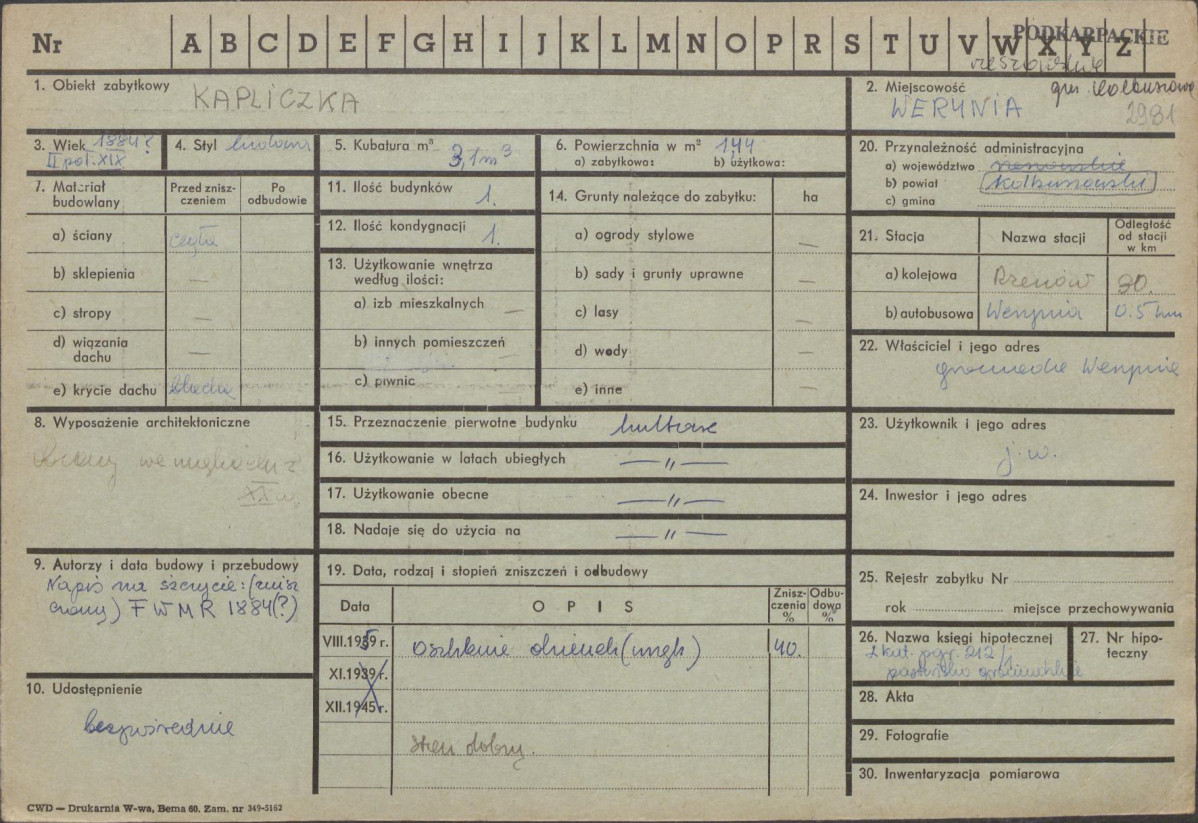 Nr A B C D E F G H I J K L M N O P R S T U V W X Y Z
PODKARPACKIE
1. Obiekt zabytkowy KAPLICZKA
2. Miejscowość gm. Kolbuszowa
WERYNIA 2981
3. Wiek 1884?
II poł. XIX
4. Styl ludowy
5. Kubatura m³
3,1 m³
6. Powierzchnia w m² 1,44
a) zabytkowa: b) użytkowa:
20. Przynależność administracyjna
a) województwo rzeszowskie
b) powiat kolbuszowski
c) gmina
7. Materiał budowlany
Przed zniszczeniem
Po odbudowie
a) ściany cegła
b) sklepienia —
c) stropy —
d) wiązania dachu —
e) krycie dachu blacha
11. Ilość budynków 1.
12. Ilość kondygnacji 1.
13. Użytkowanie wnętrza
według ilości:
a) izb mieszkalnych —
b) innych pomieszczeń
c) piwnic
14. Grunty należące do zabytku: ha
a) ogrody stylowe —
b) sady i grunty uprawne —
c) lasy —
d) wody —
e) inne —
21. Stacja Nazwa stacji Odległość
od stacji
w km
a) kolejowa Rzeszów 30.
b) autobusowa Werynia 0.5 km
22. Właściciel i jego adres
gromada Werynia
8. Wyposażenie architektoniczne
we wnękach z
XX w.
15. Przeznaczenie pierwotne budynku kultowe
16. Użytkowanie w latach ubiegłych — " —
17. Użytkowanie obecne — " —
18. Nadaje się do użycia na — " —
23. Użytkownik i jego adres
j.w.
24. Inwestor i jego adres
9. Autorzy i data budowy i przebudowy
Napis na szczycie: (znisz
czony) F W M R 1884(?)
10. Udostępnienie
bezpośrednie
19. Data, rodzaj i stopień zniszczeń i odbudowy
Data OPIS Zniszczenia % Odbudowa %
VIII.1959 r. (wnęk) 40.
XI.1939 r.
XII.1945 r.
stan dobry.
25. Rejestr zabytku Nr
rok miejsce przechowywania
26. Nazwa księgi hipotecznej
27. Nr hipoteczny
pgr. 212/
pastwisko gromadzkie
28. Akta
29. Fotografie
30. Inwentaryzacja pomiarowa
CWD — Drukarnia W-wa, Bema 60. Zam. nr 349-5162